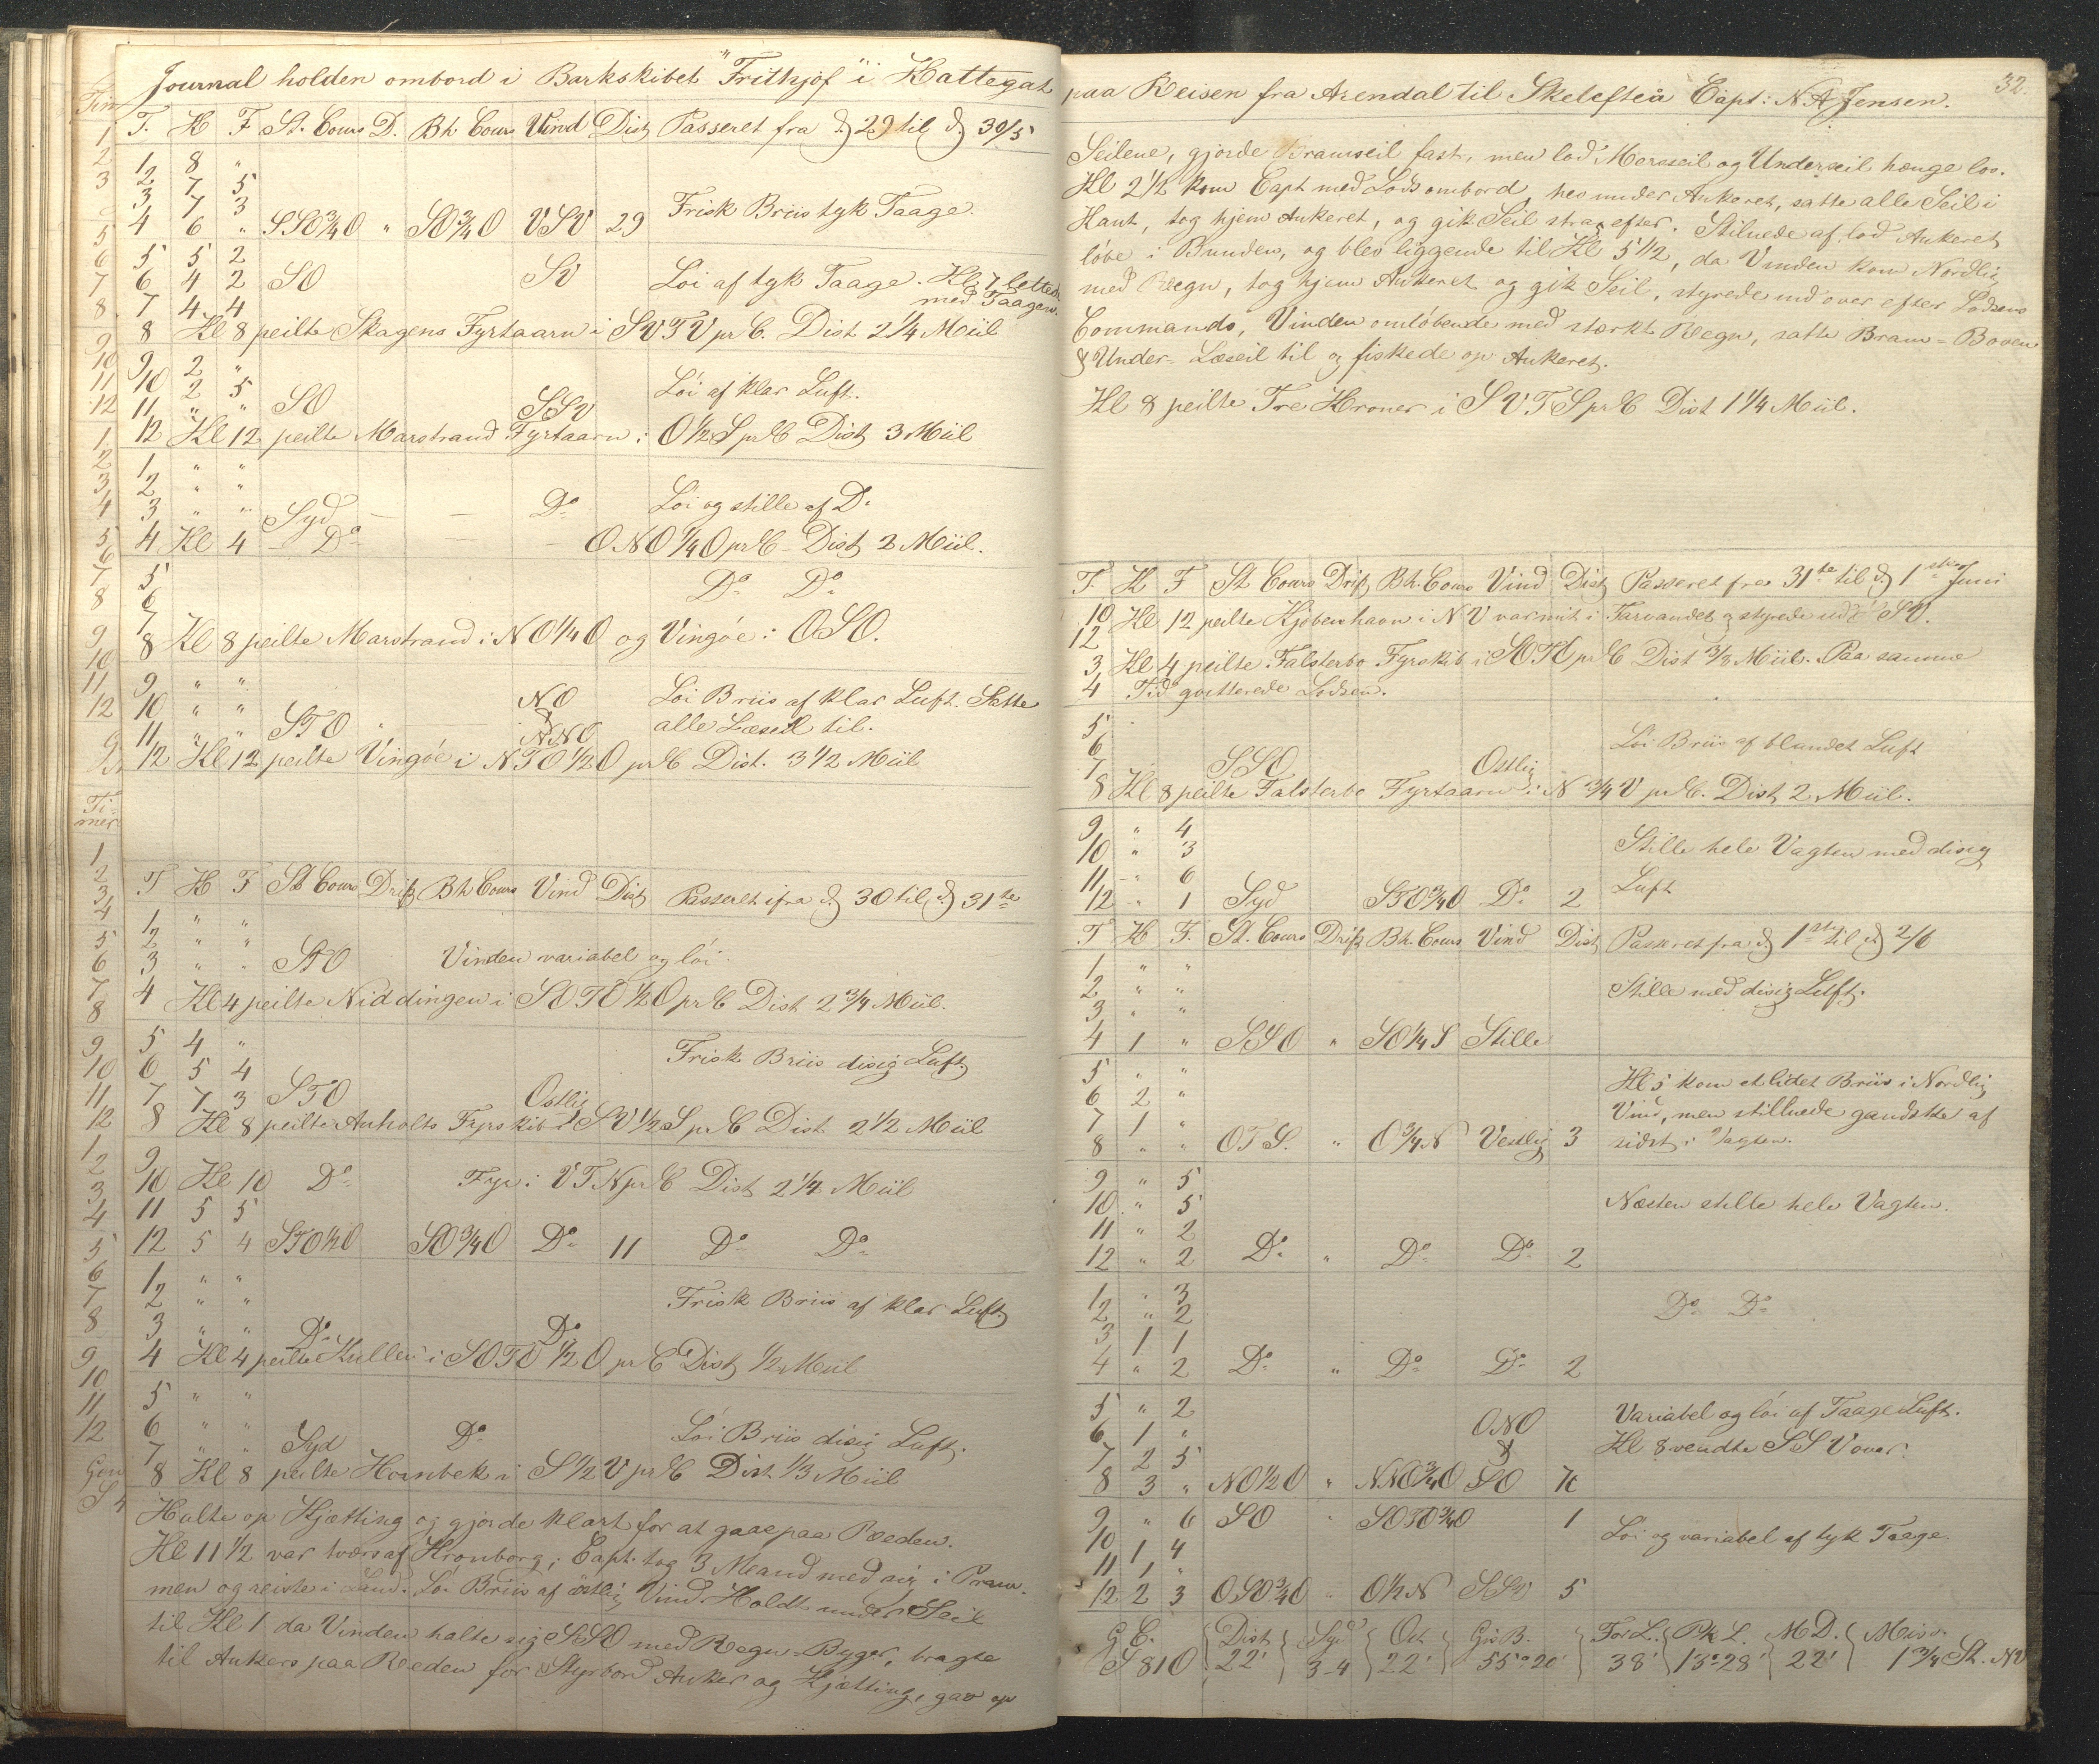 Journal holden ombord i Barkskibet "Frithjof" i Kattegat
T. K F St. Cours D. Bh Cours Vind Dist Passeret fra d 29 til d 30/5
1 8 "
2 7 5
3 7 3 Frisk Briis tyk Taage.
4 6 " SSO3/4O " SO3/4O VSV 29
5 5 2
6 4 2 SO SV Löi af tyk Taage. Kl 7 lettede
7 4 4 med Taagen.
8 Kl 8 peilte Skagens Fyrtaarn i SVTV pr C. Dist 2 1/4 Miil
9 2 "
10 2 5 Löi af klar Luft.
11 " " SO SSV
12 Kl 12 peilte Marstrand Fyrtaarn i O1/2S pr C Dist 3 Miil
1 " "
2 " "
3 " " Syd — — Do Löi og stille af Do
4 Kl 4 — Do — — ONO1/4O pr C - Dist 2 Miil.
5
6 Do Do
7
8 Kl 8 peilte Marstrand i NO1/4O og Vingöe i OSO.
9 " "
10 " " NO Löi Briis af klar Luft. Satte
11 " " STO " & NNO alle Læseil til.
12 Kl 12 peilte Vingöe i NTO1/2O pr C Dist. 3 1/2 Miil
T K F St Cours Drift Bh Cours Vind Dist Passeret ifra d 30 til d 31te
1 " "
2 " "
3 " " STO Vinden variabel og löi.
4 Kl 4 peilte Niddingen i SOTO1/2O pr C Dist 2 3/4 Miil.
5 4 "
6 5 4 Frisk Briis disig Luft.
7 7 3 STO Ostlig
8 Kl 8 peilte Anholts Fyrskib i SV1/2S pr C Dist 2 1/2 Miil
9
10 Kl 10 Do Fyr i VTN pr C Dist 2 1/4 Miil
11 5 5
12 5 4 STO1/2O SO3/4O Do 11 Do Do
1 " "
2 " " Frisk Briis af klar Luft
3 " " Do Do
4 Kl 4 peilte Kullen i SOTO1/2O pr C Dist 1/2 Miil
5 " "
6 " "
7 " " Syd Do Löi Briis disig Luft.
8 Kl 8 peilte Hornbek i S1/2V pr C Dist 1/3 Miil
Halte op Kjætting og gjorde klart for at gaae paa Reeden.
Kl 11 1/2 var tvers af Kronborg; Capt. tog 3 Mand med sig i Pram-
men og reiste i Land. Löi Briis af östlig Vind. Holdt under Seil
til Kl 1 da Vinden halte sig SSO med Regn-Byger, bragte
til Ankers paa Reeden for Styrbord Anker og Kjætting, gav op
32.
paa Reisen fra Arendal til Skelefteå Capt: N. A. Jensen.
Seilene, gjorde Bramseil fast, men lod Mersseil og Underseil hænge los.
Kl 2 1/2 kom Capt med Lods ombord, hev under Ankeret, satte alle Seil i
Kant, tog hjem Ankeret, og gik Seil strax efter. Stilnede af, lod Ankeret
löbe i Bunden, og blev liggende til Kl 5 1/2, da Vinden kom Nordlig
med Regn, tog hjem Ankeret og gik Seil, styrede ind over efter Lodsens
Commando, Vinden omlöbende med stærkt Regn, satte Bram- Boven
& Under- Læseil til og fiskede op Ankeret.
Kl 8 peilte Tre Kroner i SVTS pr C Dist 1 1/4 Miil.
T. K F St Cours Drift Bh. Cours Vind Dist Passeret fra 31te til d 1ste Juni
10 Kl 12 peilte Kjöbenhavn i NV var mit i Farvandet og styrede ud SV.
12
3 Kl 4 peilte Falsterbo Fyrskib i SOTO pr C Dist 3/8 Miil. Paa samme
4 Tid qvitterede Lodsen.
5
6 Löi Briis af blandet Luft
7 SSO Ostlig
8 Kl 8 peilte Falsterbo Fyrtaarn i N3/4V pr C. Dist 2 Miil.
9 " 4
10 " 3 Stille hele Vagten med disig
11 " 6 Luft
12 " 1 Syd STO3/4O Do 2
T K F. St. Cours Drift Bh. Cours Vind Dist Passeret fra d 1ste til d 2/6
1 " "
2 " " Stille med disig Luft.
3 " "
4 1 " SSO " SO1/4S Stille
5 " " Kl 5 kom et lidet Briis i Nordlig
6 2 " Vind, men stillnede gandske af
7 1 " sidst i Vagten.
8 " " OTS. " O3/4N Vestlig 3
9 " 5
10 " 5 Næsten stille hele Vagten.
11 " 2
12 " 2 Do " Do Do 2
1 " 3
2 " 2 Do Do
3 1 1
4 " 2 Do " Do Do 2
5 " 2 Variabel og löi af Taage Luft.
6 1 " ONO Kl 8 vendte SSV over.
7 2 5 &
8 3 " NO1/2O " NNO3/4O SO 7
9 " 6 SO " SOTO3/4O 1
10 1 4 Löi og variabel af tyk Taage.
11 1 "
12 2 3 OSO3/4O " O1/2N SSV 5
G C. Dist Syd Ost Gis B. For L. Pk L. MD. Misv.
S 81 O 22' 3-4 22' 55°20' 38' 13°28' 22' 1 3/4 St. NV